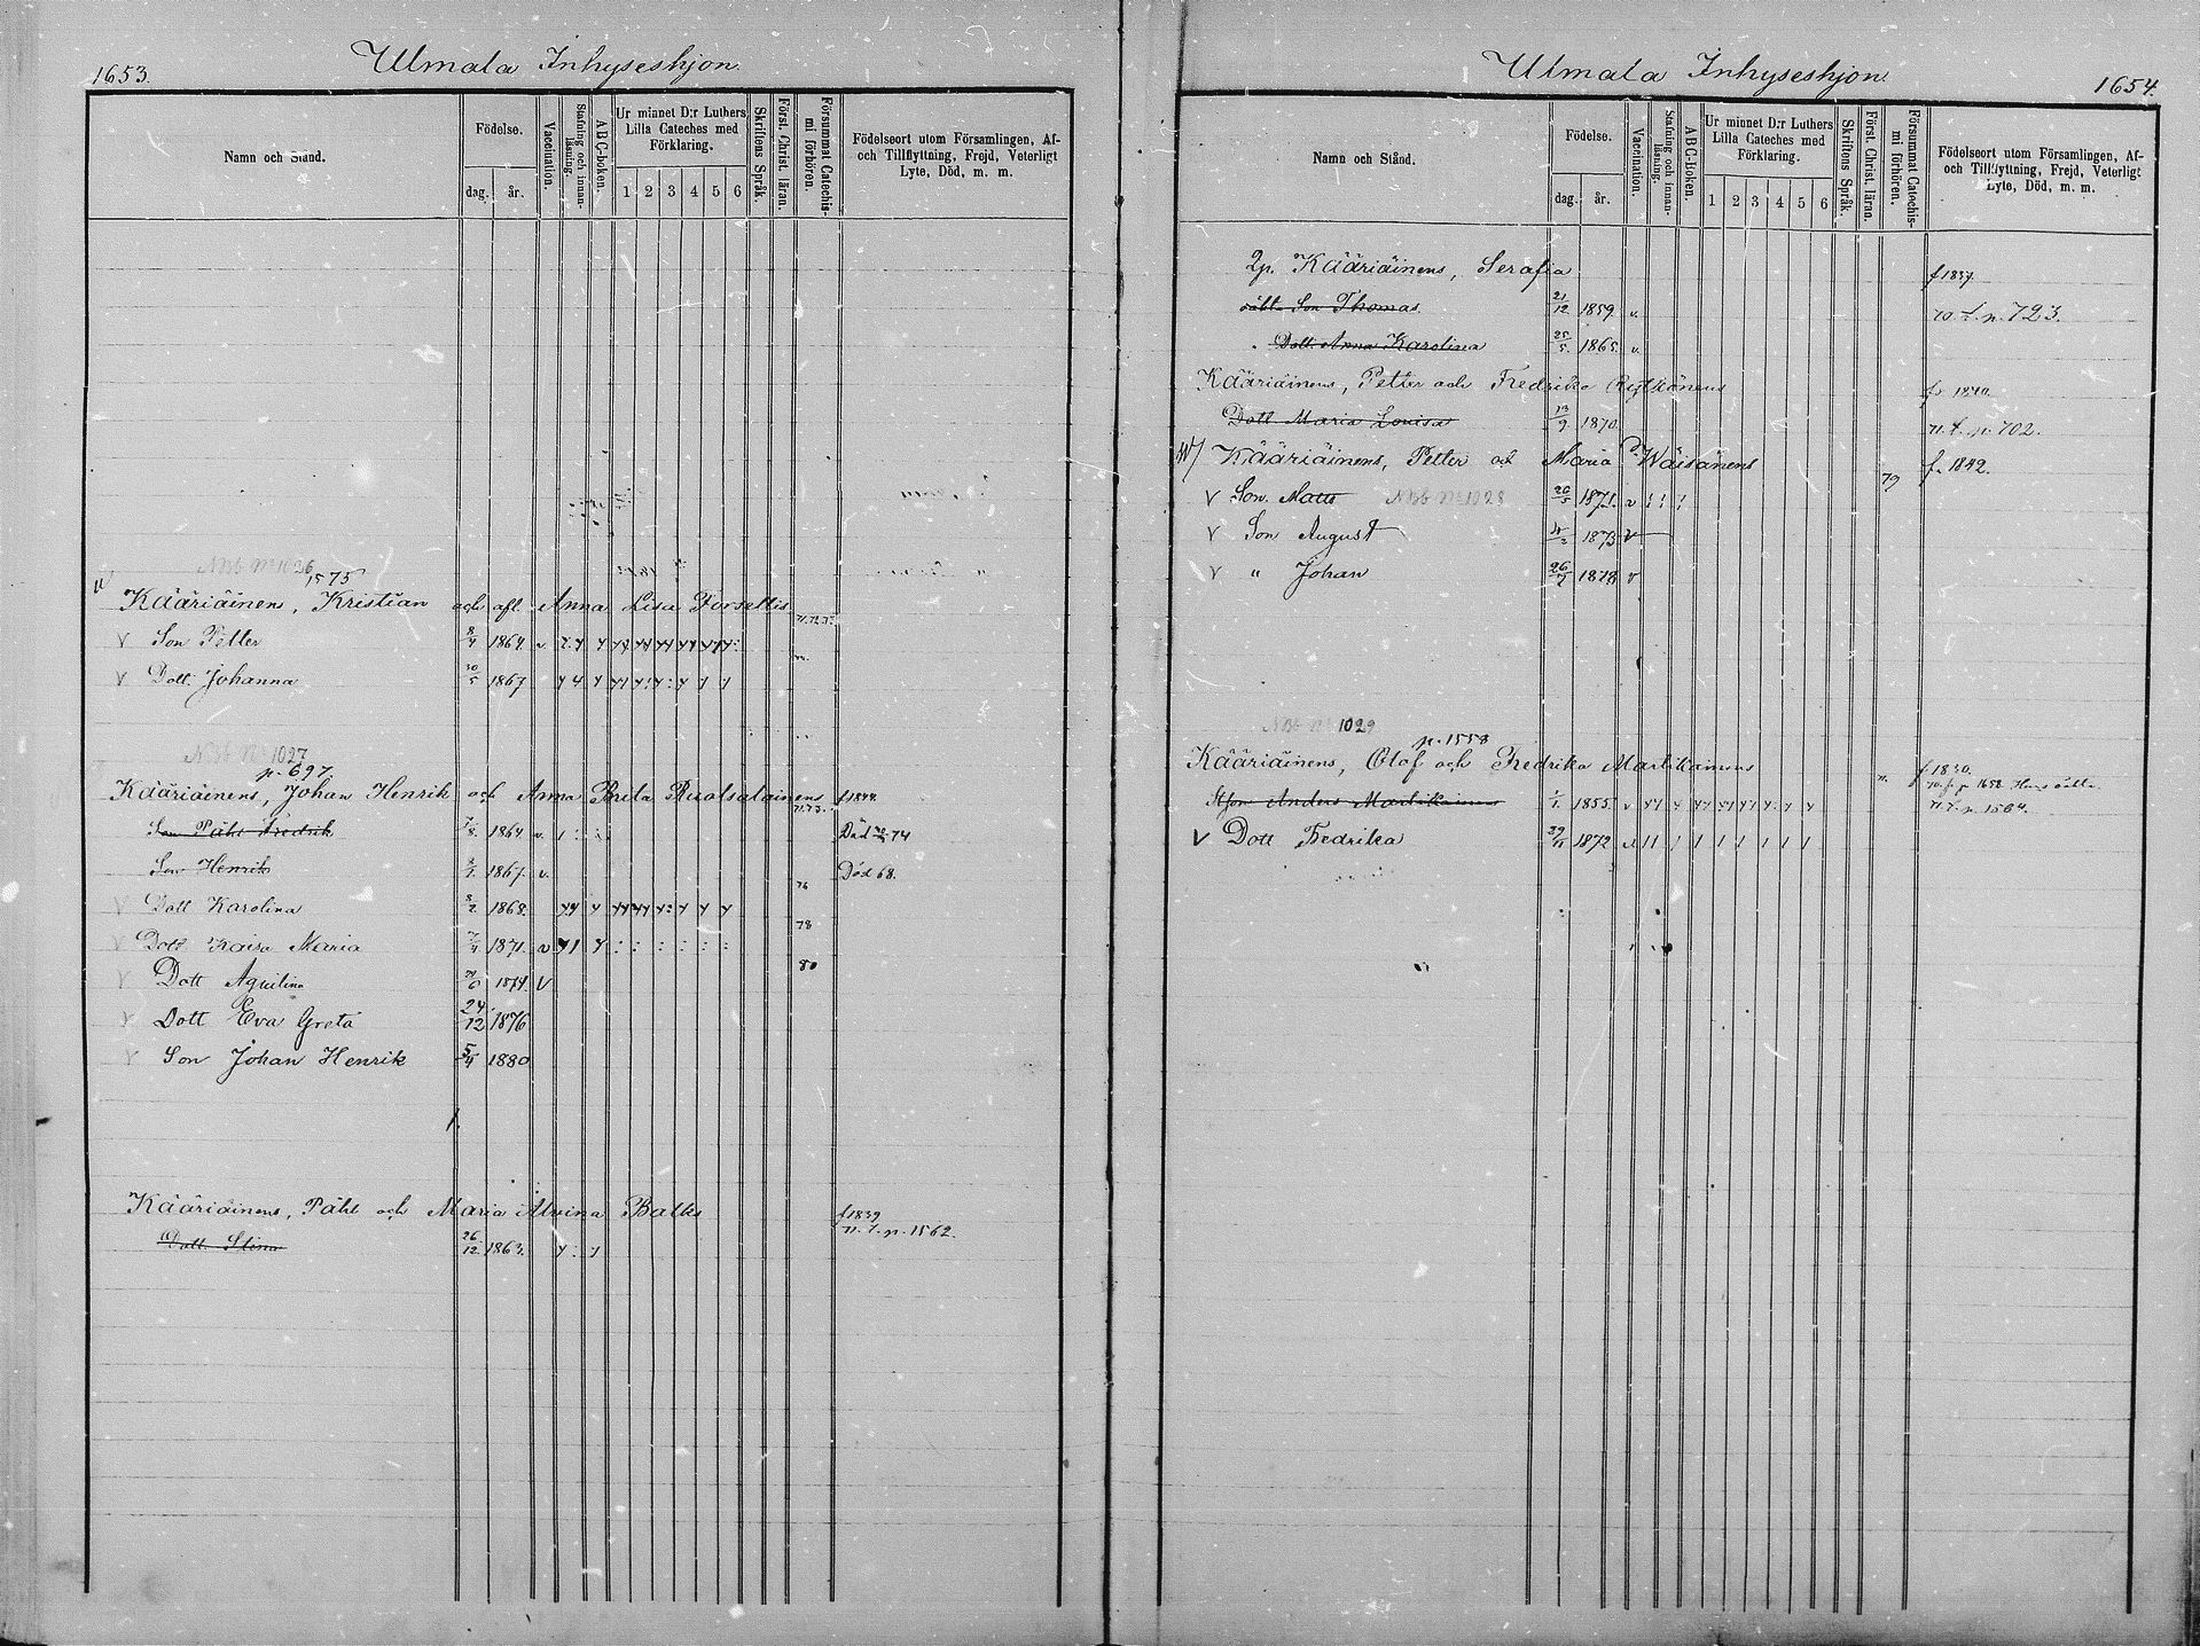 1653.
Ulmala Inhyseshjon.
Namn och Stånd.
Födelse.
dag. år.
Vaccination.
Stafning och innan-läsning.
ABC-boken.
Ur minnet D:r Luthers
Lilla Cateches med
Förklaring.
1 2 3 4 5 6
Skriftens Språk.
Först. Christ. läran.
Försummat Catechis-mi förhören.
Födelseort utom Församlingen, Af-
och Tillflyttning, Frejd, Veterligt
Lyte, Död, m. m.
Nbb No 1026
1575
Kääriäinens, Kristian och afl. Anna Lisa Forsellis
v Son Petter 8/4 1864. v
v Dott. Johanna 30/5 1867
Nbb No 1027
p. 697.
Kääriäinens, Johan Henrik och Anna Brita Ruotsalainens f 1844.
71.73.
Son Påhl Fredrik 7/8. 1864 v. Död 74
Son Henrik 1867. v. Död 68.
76
v Dott Karolina 1868.
78
v Dott Kaisa Maria 1871. v
80
v Dott Aquilina 1874. V
v Dott Eva Greta 24/12 1876
v Son Johan Henrik 5/4 1880
Kääriäinens, Påhl och Maria Alvina Balks f 1839
71. t. p. 1562.
Dott. Stina 26/12. 1863.
Ulmala Inhyseshjon
1654.
Namn och Stånd.
Födelse.
dag. år.
Vaccination.
Stafning och innan-läsning.
ABC-boken.
Ur minnet D:r Luthers
Lilla Cateches med
Förklaring.
1 2 3 4 5 6
Skriftens Språk.
Först. Christ. läran.
Försummat Catechis-mi förhören.
Födelseort utom Församlingen, Af-
och Tillflyttning, Frejd, Veterligt
Lyte, Död, m. m.
Qp. Kääriäinens, Serafia f 1837.
oäkta Son Thomas 21/12 1859. v. 70. t. p. 723.
Dott. Anna Karolina 25/5. 1865. v.
Kääriäinens, Petter och Fredrika f. 1840.
Dott Maria Lovisa 13/9. 1870. 71. t. p. 702.
Kääriäinens, Petter och Maria Wäisänens f. 1842.
79
v Son Matts Nbb No 1028 20/5 1871. v
v Son August 1873 v
v " Johan 26/7 1878 v
Nbb No 1029
p. 1558
Kääriäinens, Olof och Fredrika Martikainens f 1830.
71.
Stjson Anders Martikainens 1/1. 1855 v 71. t. p. 1564.
V Dott Fredrika 29/11 1872